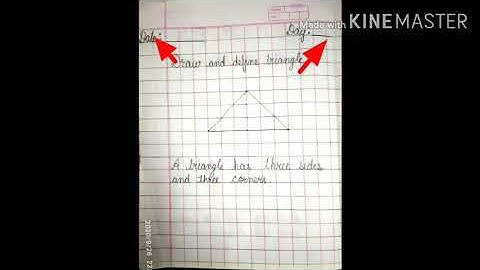 Made with KINEMASTER
Date: Day:
Draw and define triangle
A triangle has three sides
and three corners.